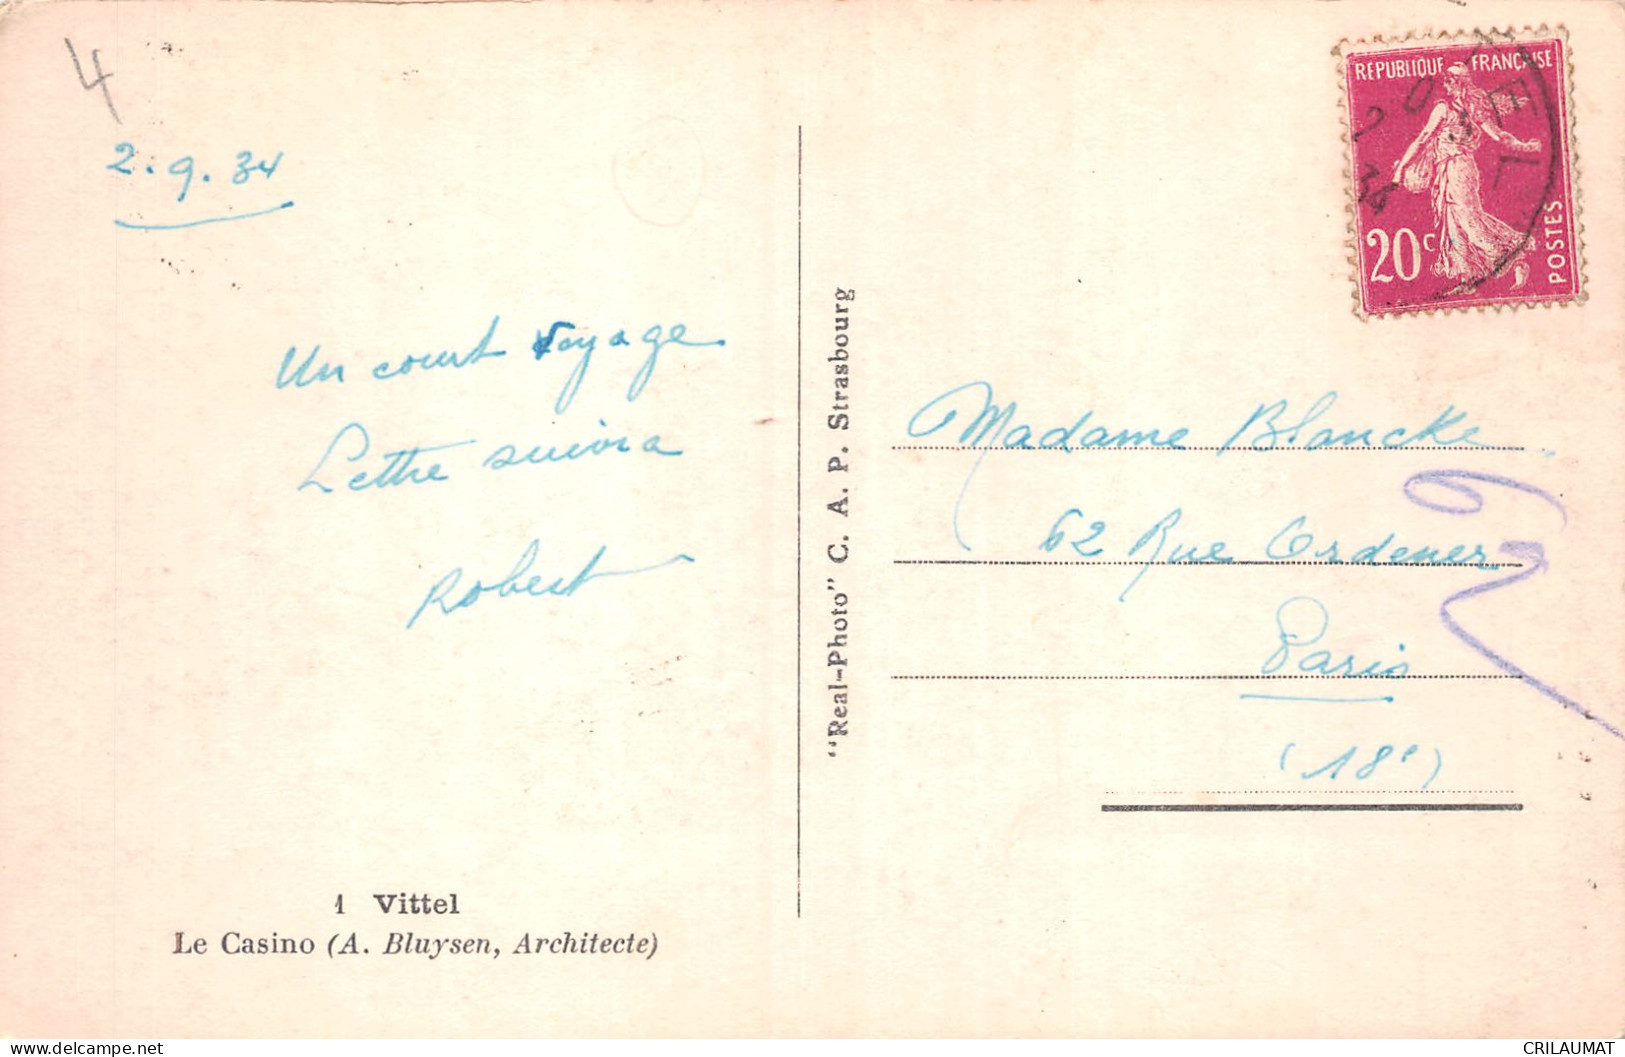 4
2.9.34
Un court voyage
Lettre suivra
Robert
1 Vittel
Le Casino (A. Bluysen, Architecte)
"Real-Photo" C. A. P. Strasbourg
REPUBLIQUE FRANÇAISE
20c
POSTES
Madame Blancke
62 Rue Ordener
Paris
(18e)
delcampe.net
CRILAUMAT